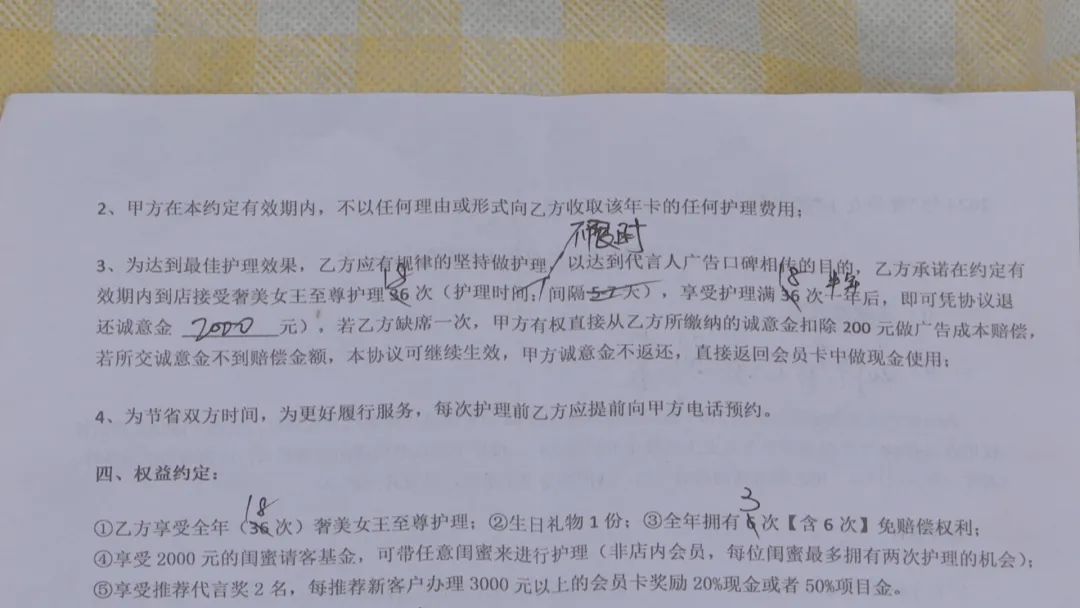 2、甲方在本约定有效期内，不以任何理由或形式向乙方收取该年卡的任何护理费用；
不限时
3、为达到最佳护理效果，乙方应有规律的坚持做护理，以达到代言人广告口碑相传的目的，乙方承诺在约定有
18 18 半年
效期内到店接受奢美女王至尊护理36次（护理时间：间隔5-7天），享受护理满36次一年后，即可凭协议退
还诚意金 2000 元），若乙方缺席一次，甲方有权直接从乙方所缴纳的诚意金扣除 200 元做广告成本赔偿，
若所交诚意金不到赔偿金额，本协议可继续生效，甲方诚意金不返还，直接返回会员卡中做现金使用；
4、为节省双方时间，为更好履行服务，每次护理前乙方应提前向甲方电话预约。
四、权益约定：
18 3
①乙方享受全年（36次）奢美女王至尊护理；②生日礼物1份；③全年拥有6次【含6次】免赔偿权利；
④享受2000元的闺蜜请客基金，可带任意闺蜜来进行护理（非店内会员，每位闺蜜最多拥有两次护理的机会）；
⑤享受推荐代言奖2名，每推荐新客户办理3000元以上的会员卡奖励20%现金或者50%项目金。